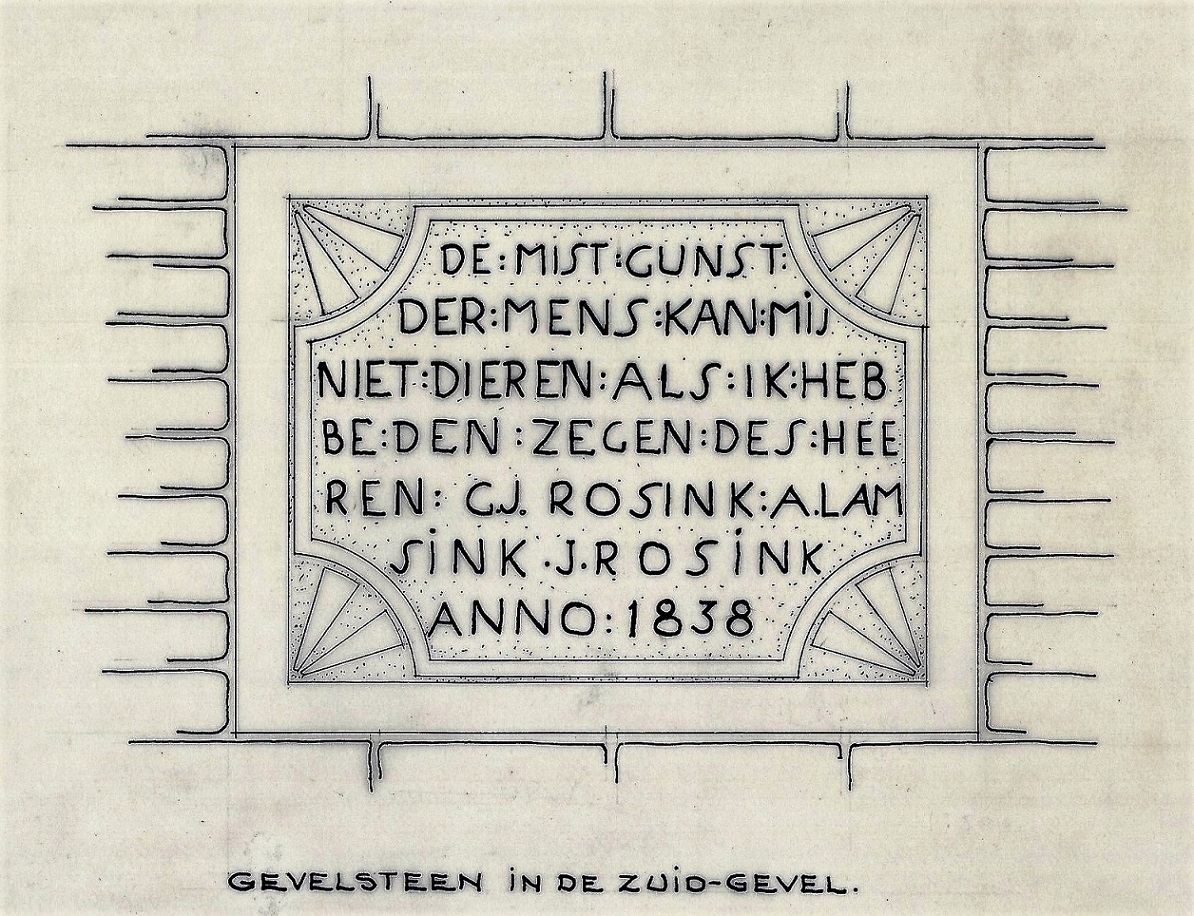 DE:MIST:GUNST:
DER:MENS:KAN:MIJ
NIET:DIEREN:ALS:IK:HEB
BE:DEN:ZEGEN:DES:HEE
REN: G.J. ROSINK:A.LAM
SINK.J.ROSINK
ANNO:1838
GEVELSTEEN IN DE ZUID-GEVEL.